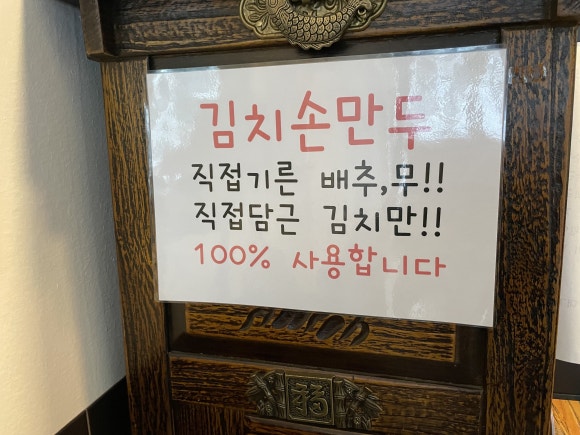 김치손만두
직접기른 배추,무!!
직접담근 김치만!!
100% 사용합니다
福